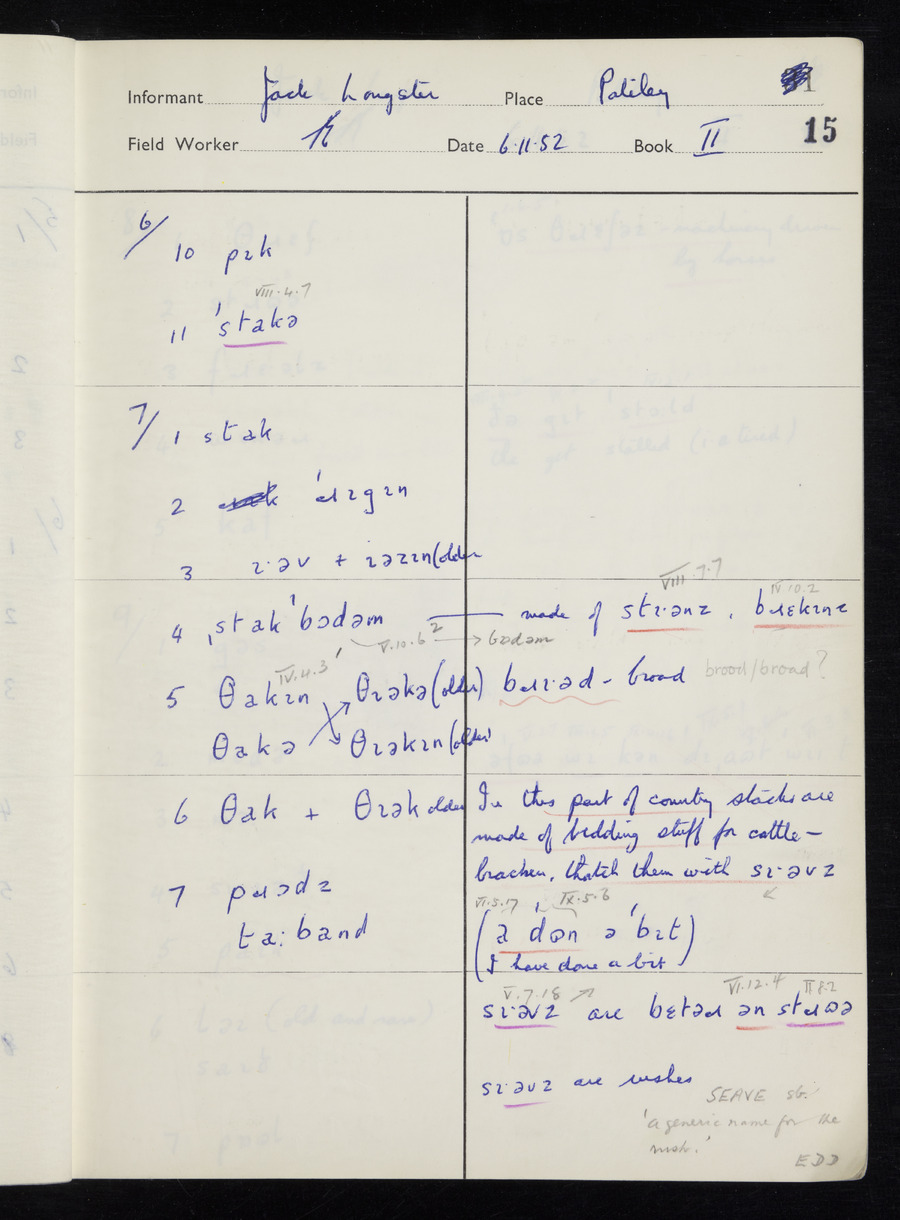 Informant Jack Longster Place Pateley 1
15
Field Worker Date 6.11.52 Book II
6/
10 pɪk
VIII.4.7
11 ˈstakə
7/ 1 stak
2 ˈɹɪgɪn
3 ɪ·əv + ɪəzɪn (older
4 ˌstakˈbɔdəm made of stɪ·ənz, bɹɛkɪnz
VIII.7.7
IV 10.2
V.10.6² → bɔdəm
IV.4.3
5 θakɪn θɪəkə (older) bɹɪ·əd – broad brood/broad?
θakə θɪəkɪn (older)
6 θak + θɪək older
In this part of country stacks are
made of bedding stuff for cattle –
bracken, thatch them with sɪ·əvz
7 pɹɔdz
ta: band
VI.5.17 IX.5.6
(a dʊn ə ˈbɪt)
I have done a bit
V.7.18 VI.12.4 II 8.2
sɪ·əvz are bɛtəɹ ən stɹʊə
sɪ·əvz are rushes
SEAVE sb.
'a generic name for the
rush.'
EDD